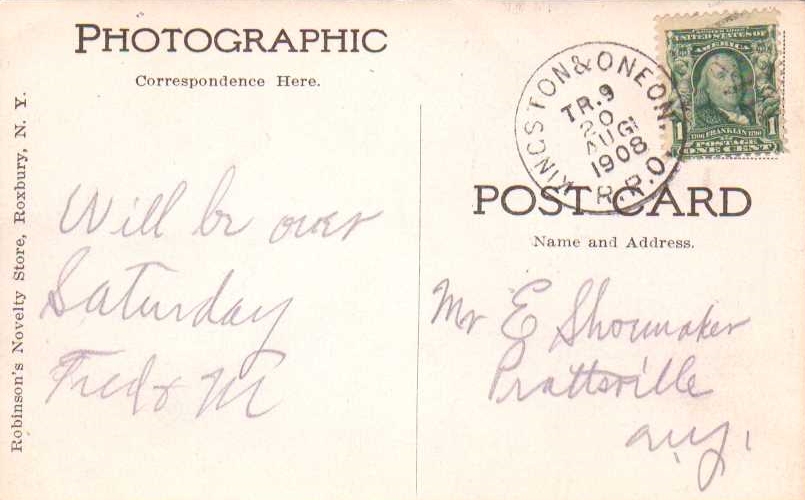 PHOTOGRAPHIC
Correspondence Here.
Robinson's Novelty Store, Roxbury, N. Y.
Will be over
Saturday
Fred & M
KINGSTON & ONEON. R.P.O.
TR. 9
20
AUG
1908
UNITED STATES OF
AMERICA
1 1706 FRANKLIN 1790 1
POSTAGE
ONE CENT
POST CARD
Name and Address.
Mr E Shoumaker
Prattsville
N.Y.